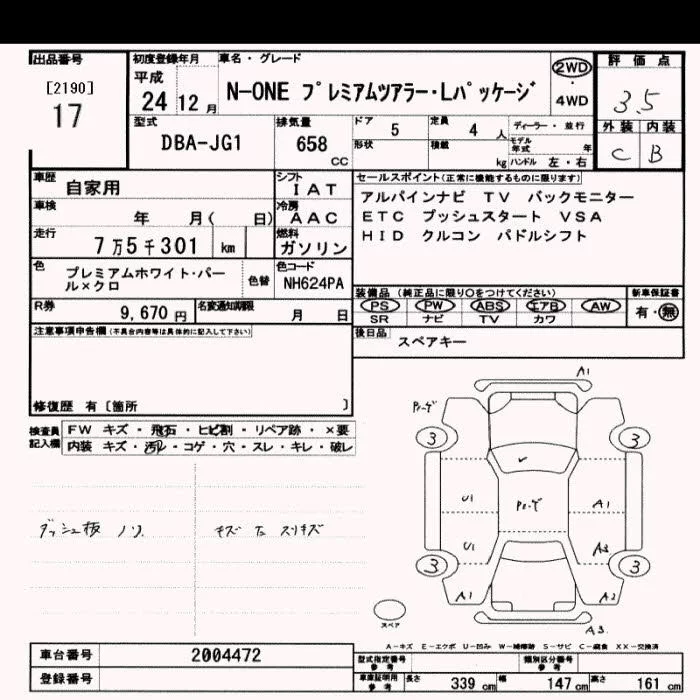 出品番号
[2190]
17
初度登録年月
平成
24 12 月
車名・グレード
N-ONE プレミアムツアラー・Lパッケージ
2WD
・
4WD
評価点
3.5
外装 内装
C B
型式
DBA-JG1
排気量
658
CC
ドア 5
定員 4 人
ディーラー・並行
形状
積載 kg
モデル年式 年
ハンドル 左・右
車歴
自家用
シフト
IAT
車検
年 月( 日)
冷房
AAC
走行
7万5千301 km
燃料
ガソリン
色
プレミアムホワイト・パール×クロ
色替
色コード
NH624PA
R券
9,670 円
名変通知期限
月 日
セールスポイント(正常に機能するものに限ります)
アルパインナビ TV バックモニター
ETC プッシュスタート VSA
HID クルコン パドルシフト
装備品 (純正品に限り○をつけてください)
PS PW ABS エアB AW
SR ナビ TV カワ
新車保証書
有・無
後日品
スペアキー
注意事項申告欄 (不具合内容等は具体的に記入して下さい)
修復歴 有〔箇所 〕
検査員
記入欄
FW キズ・飛石・ヒビ割・リペア跡・×要
内装 キズ・汚レ・コゲ・穴・スレ・キレ・破レ
ダッシュ板 ノリ
キズ スリキズ
A1
3 3
U1 A1
U1 A3
3 3
A1 A2
A3
スペア
A-キズ E-エクボ U-凹み W-補修跡 S-サビ C-腐食 XX-交換済
車台番号 2004472
登録番号
型式指定番号
参考
類別区分番号
参考
車庫証明用
参考
長さ 339 cm 幅 147 cm 高さ 161 cm